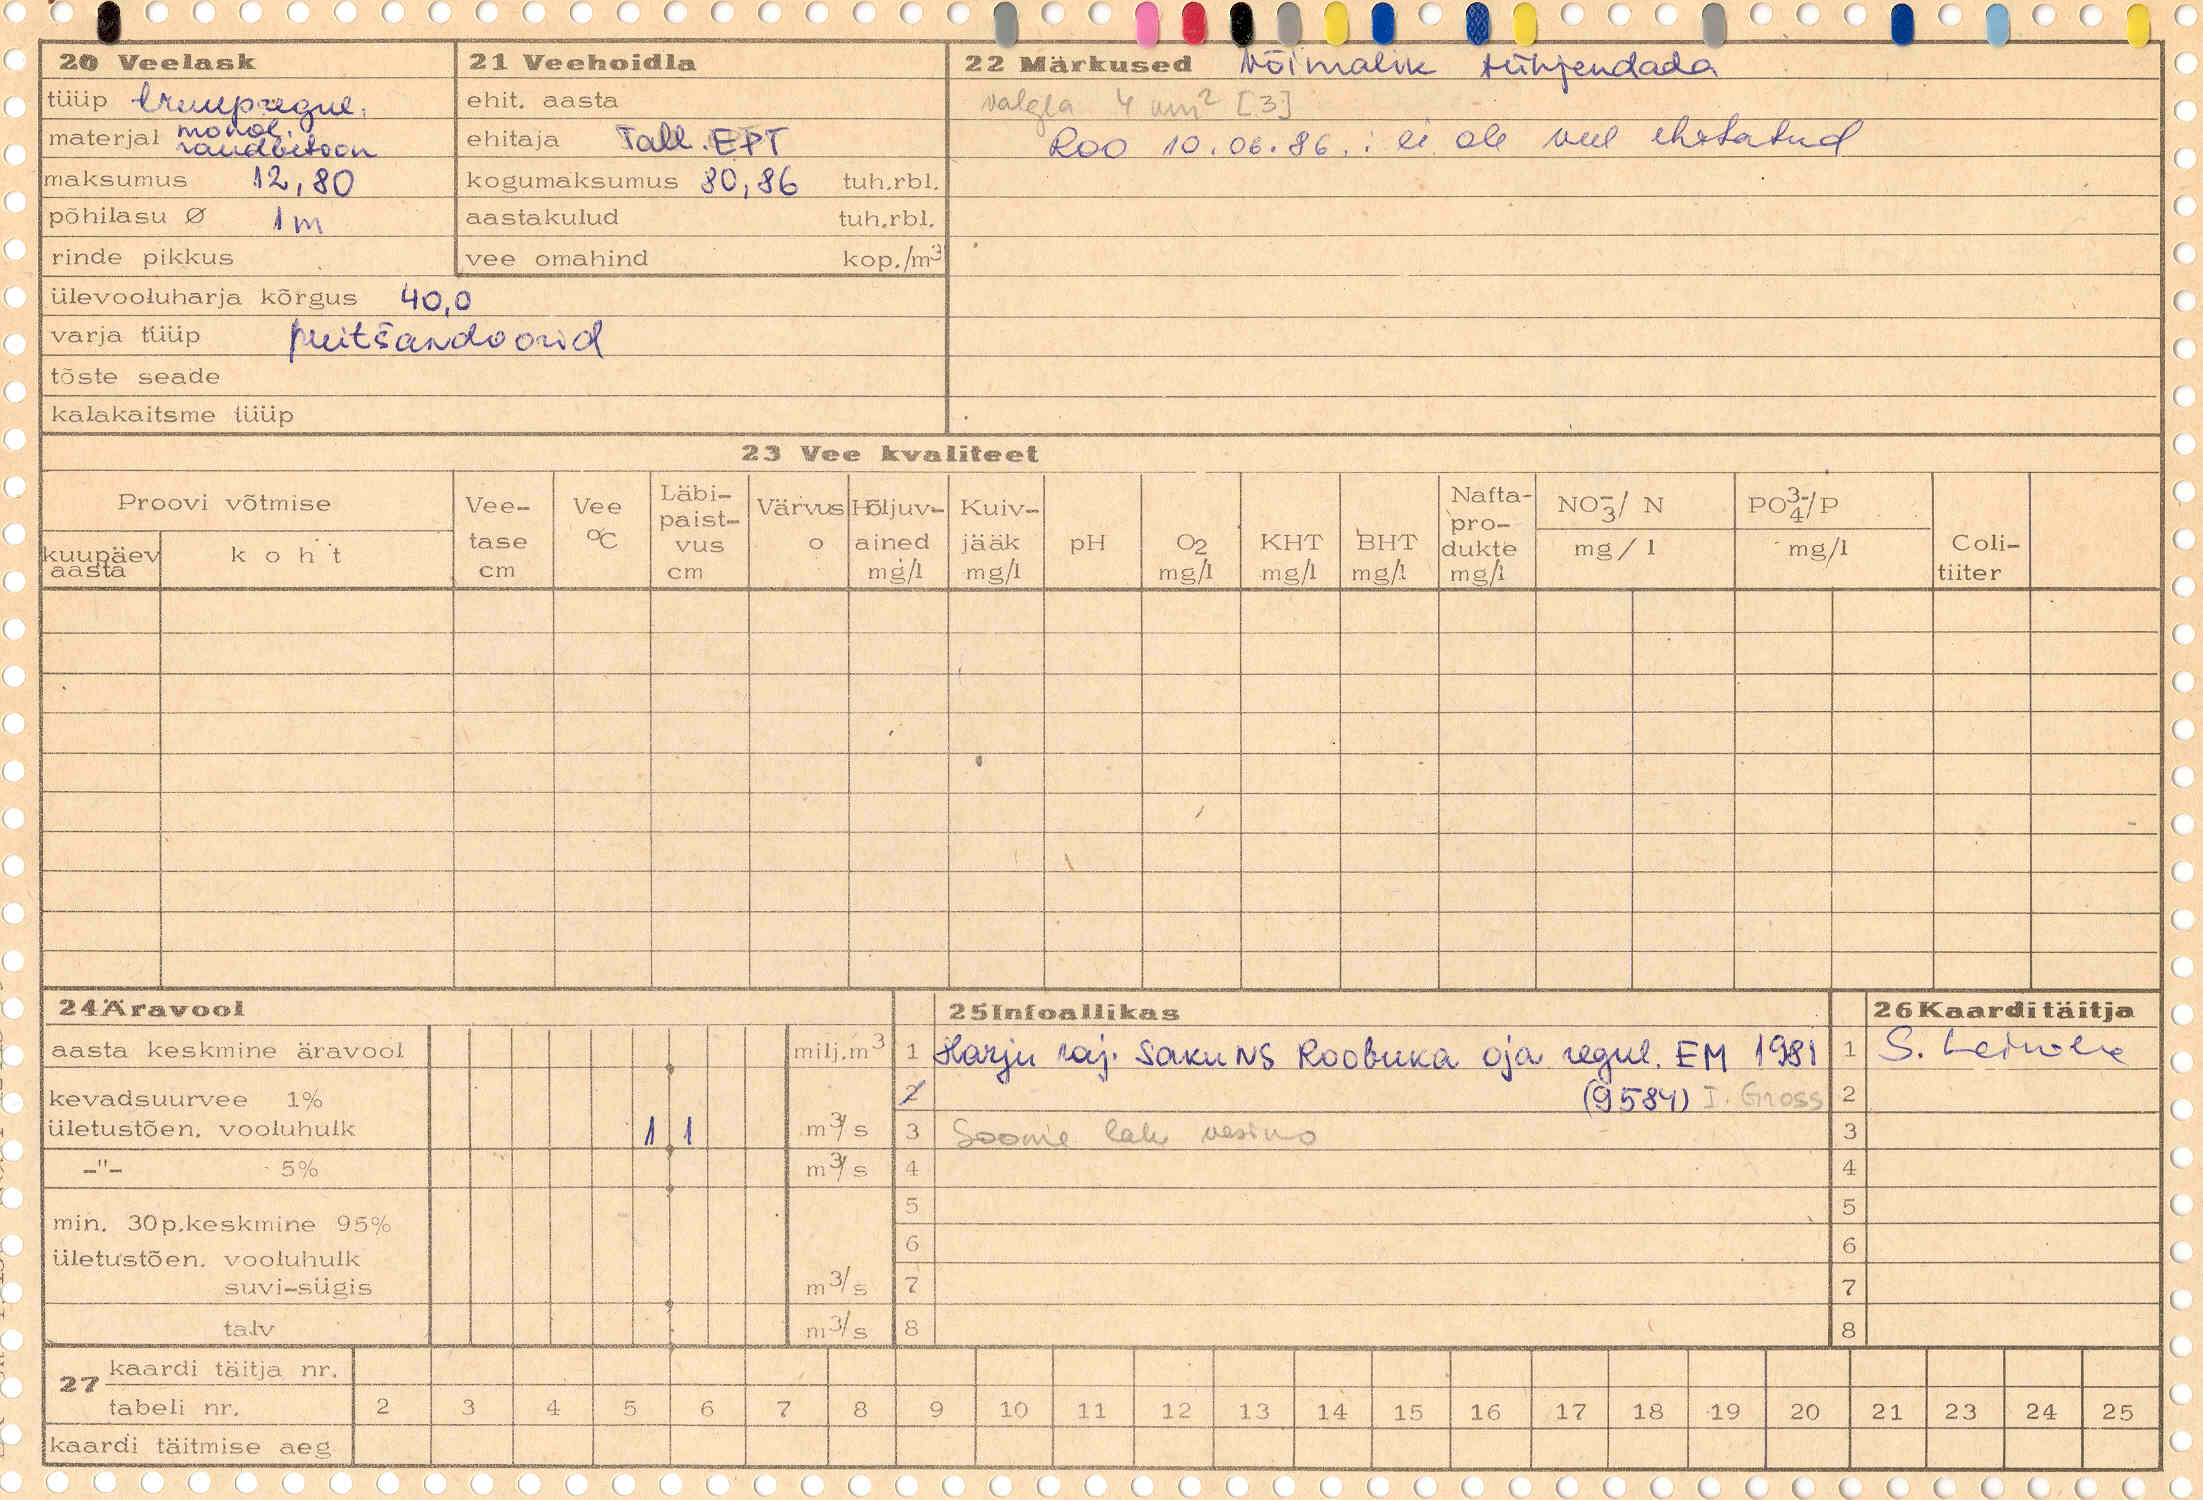 20 Veelask
tüüp truupregul.
materjal monol. raudbetoon
maksumus 12,80
põhilasu Ø 1m
rinde pikkus
ülevooluharja kõrgus 40,0
varja tüüp puitšandoorid
tõste seade
kalakaitsme tüüp
21 Veehoidla
ehit. aasta
ehitaja Tall. EPT
kogumaksumus 80,86 tuh.rbl.
aastakulud tuh.rbl.
vee omahind kop./m³
22 Märkused Võimalik tühjendada
valgla 4 km² [3]
Roo 10.06.86.: ei ole veel ehitatud
23 Vee kvaliteet
Proovi võtmise
kuupäev aasta
koht
Vee-
tase
cm
Vee
°C
Läbi-
paist-
vus
cm
Värvus
o
Hõljuv-
ained
mg/l
Kuiv-
jääk
mg/l
pH
O2
mg/l
KHT
mg/l
BHT
mg/l
Nafta-
pro-
dukte
mg/l
NO₃⁻/ N
mg/l
PO₄³⁻/P
mg/l
Coli-
tiiter
24 Äravool
aasta keskmine äravool milj.m³
kevadsuurvee 1%
ületustõen. vooluhulk 1 1 m³/s
-"- 5% m³/s
min. 30p.keskmine 95%
ületustõen. vooluhulk
suvi-sügis m³/s
talv m³/s
25 Infoallikas
1 Harju raj. Saku NS Roobuka oja regul. EM 1981
2 (9584) I. Gross
3 Soome lahe vesik.
4
5
6
7
8
26 Kaarditäitja
1 S.
2
3
4
5
6
7
8
27 kaardi täitja nr.
tabeli nr. 2 3 4 5 6 7 8 9 10 11 12 13 14 15 16 17 18 19 20 21 23 24 25
kaardi täitmise aeg